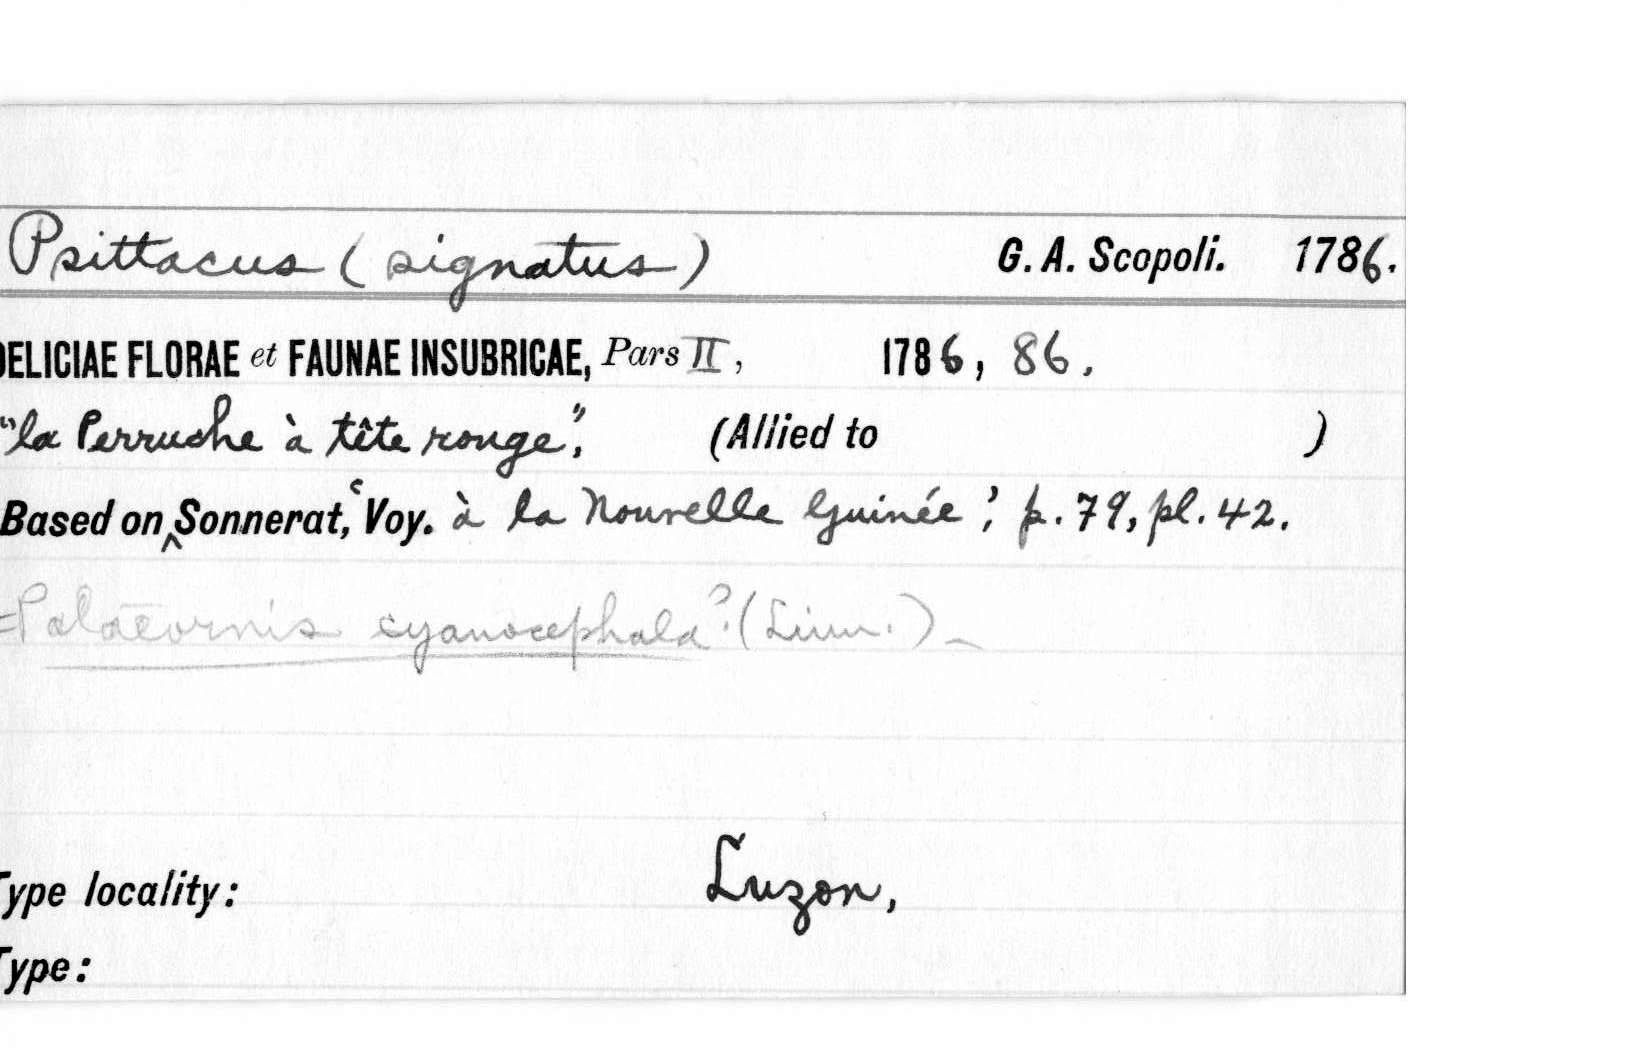 Psittacus (signatus) G. A. Scopoli. 1786.
DELICIAE FLORAE et FAUNAE INSUBRICAE, Pars II, 1786, 86.
"la Perruche à tête rouge", (Allied to )
Based on ‸Sonnerat, 'Voy. à la Nouvelle Guinée', p. 79, pl. 42.
=Palaeornis cyanocephala? (Linn.)–
Type locality: Luzon,
Type: